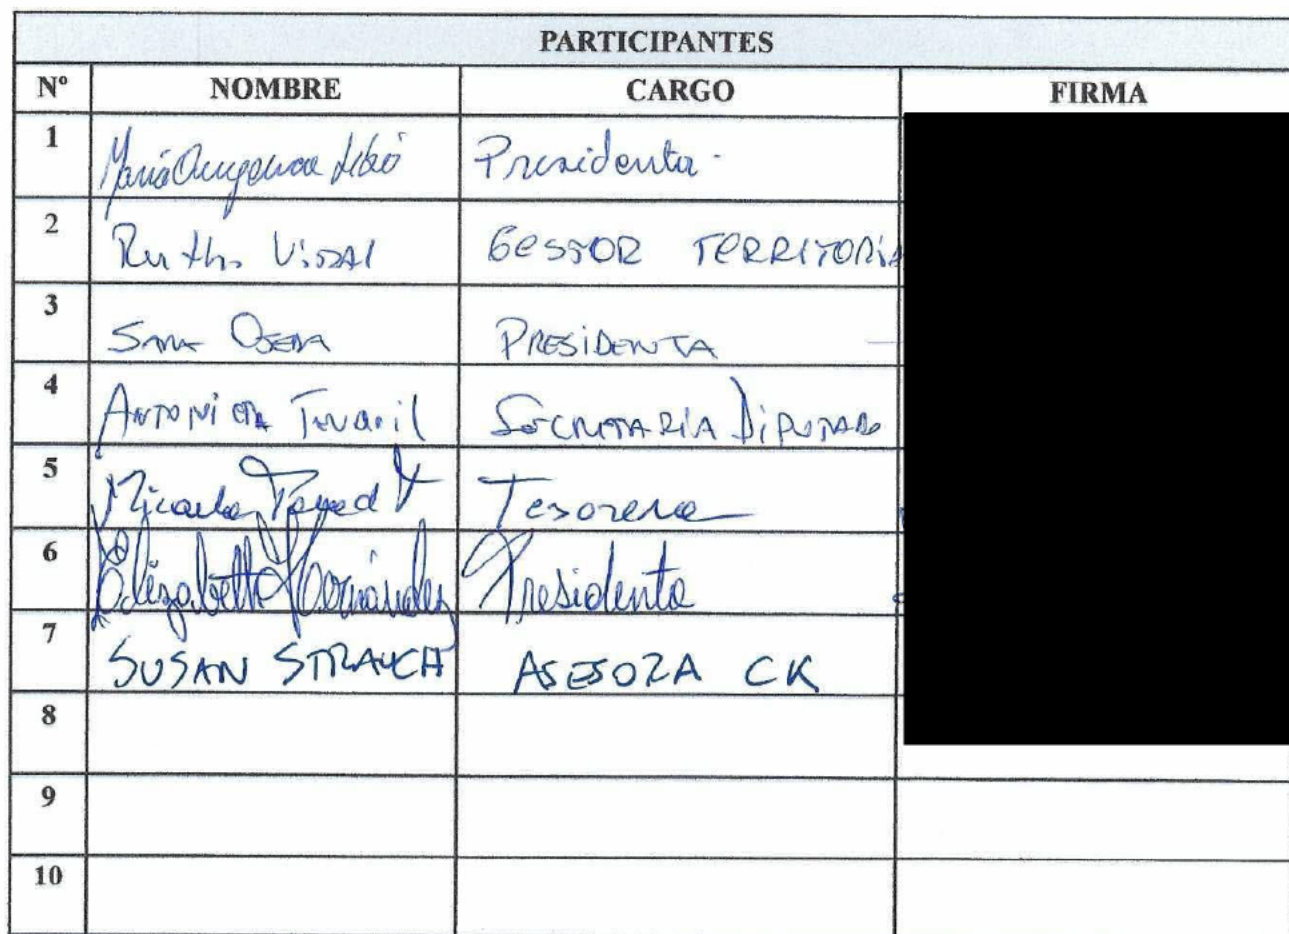 PARTICIPANTES
Nº NOMBRE CARGO FIRMA
1 Presidenta.
2 Ruth Vidal GESTOR TERRITORIA
3 SARA OJEDA PRESIDENTA
4 ANTONIETA SECRETARIA DIPUTADO
5 Micaela Tesorera
6 Elizabeth Hernández Presidenta
7 SUSAN STRAUCH ASESORA CK
8
9
10